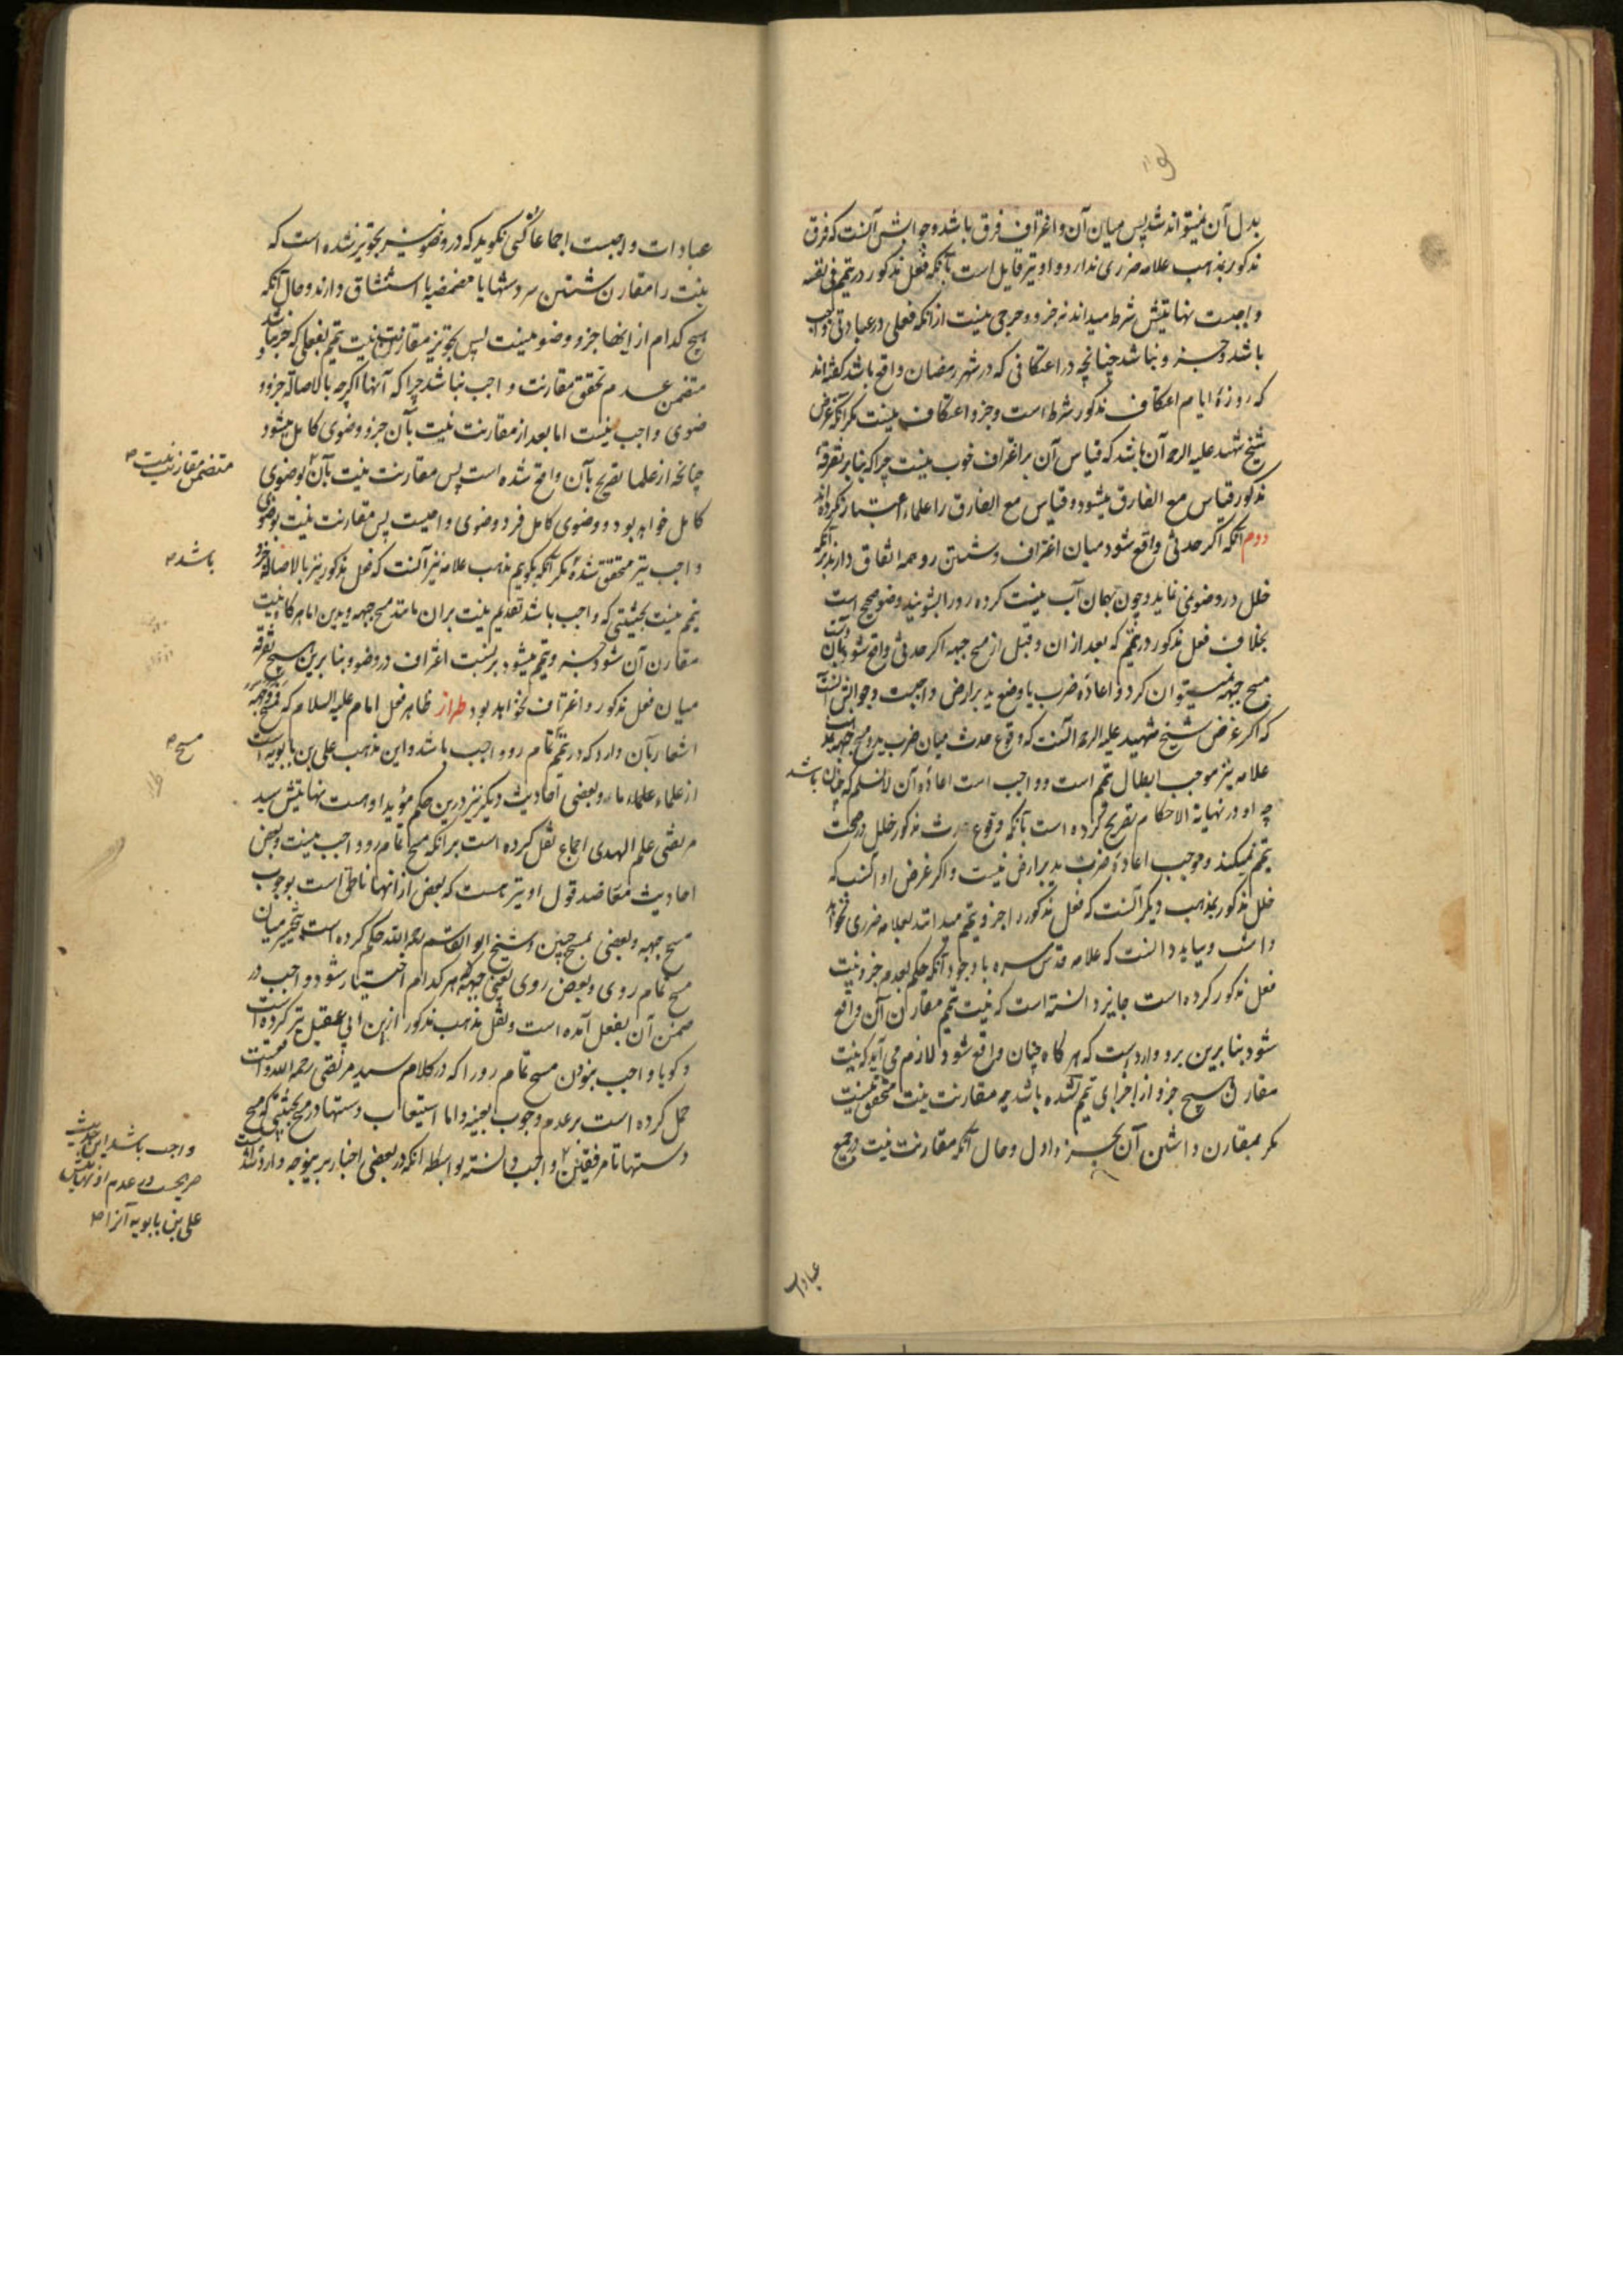 بدل آن نمیتواند شد پس میان آن و اغتراف فرق باشد و جوابش آنست که فرق
مذکور بمذهب علامه ضرری ندارد و او نیز قایل است بآنکه فعل مذکور در تیمم فی نفسه
واجبست نهایتش شرط میداند نه جزو و حرجی نیست از آنکه فعلی در عبادتی واجب
باشد و جزو نباشد چنانچه در اعتکافی که در شهر رمضان واقع باشد گفته‌اند
که روزهٔ ایام اعتکاف مذکور شرط است و جزو اعتکاف نیست مگر آنکه غرض
شیخ شهید علیه الرحمه آن باشد که قیاس آن بر اغتراف خوب نیست چرا که بنا بر تفرقهٔ
مذکور قیاس مع الفارق میشود و قیاس مع الفارق را علماء اعتبار نکرده‌اند
دوم آنکه اگر حدثی واقع شود میان اغتراف و شستن رو همه اتفاق دارند بر آنکه
خلل در وضو نمی نماید و چون بهمان آب نیت کرده رو را بشویند وضو صحیح است
بخلاف فعل مذکور در تیمم که بعد از آن و قبل از مسح جبهه اگر حدثی واقع شود بآن دست
مسح جبهه نمیتوان کرد و اعادهٔ ضرب یا وضع ید بر ارض واجبست و جوابش آنست
که اگر غرض شیخ شهید علیه الرحمه آنست که وقوع حدث میان ضرب ید و مسح جبهه نزد
علامه نیز موجب ابطال تیمم است و واجب است اعادهٔ آن لانسلم که چنان باشد
چه او در نهایة الاحکام تصریح کرده است بآنکه وقوع حدث مذکور خلل در صحت
تیمم نمیکند و موجب اعادهٔ ضرب ید بر ارض نیست و اگر غرض او آنست که
خلل مذکور بمذهب دیگر آنست که فعل مذکور را جزو تیمم میدانند بعلامه ضرری نخواهد
داشت و بباید دانست که علامه قدس سره با وجود آنکه حکم بعدم جزوئیت
فعل مذکور کرده است جایز دانسته است که نیت تیمم مقارن آن واقع
شود بنابرین برو وارد است که هر گاه چنان واقع شود لازم می آید که نیت
مقارن هیچ جزو از اجزای تیمم نشده باشد چه مقارنت نیت متحقق نیست
مگر بمقارن داشتن آن بجزو اول و حال آنکه مقارنت نیت در جمیع
عبادات
عبادات واجبست اجماعا کسی نگوید که در وضو نیز تجویز شده است که
نیت را مقارن شستن سر دستها یا مضمضه یا استنشاق دارند و حال آنکه
هیچ کدام از اینها جزو وضو نیست پس تجویز مقارنت نیت تیمم بفعلی که جزو نباشد
متضمن عدم تحقق مقارنت واجب نباشد چرا که آنها اگرچه بالاصاله جزو
وضوی واجب نیست اما بعد از مقارنت نیت بآن جزو وضوی کامل میشود
چنانچه از علما تصریح بآن واقع شده است پس مقارنت نیت بآن بوضوی
متضمن مقارنت نیت
کامل خواهد بود و وضوی کامل فرد وضوی واجبست پس مقارنت نیت بوضوی
واجب نیز متحقق شده مگر آنکه بگویم مذهب علامه نیز آنست که فعل مذکور نیز بالاصاله جزو
باشد
تیمم نیست بحیثیتی که واجب باشد تقدیم نیت بر آن مانند مسح جبهه و یدین اما هر گاه نیت
مقارن آن شود جزو تیمم میشود بر نسبت اغتراف در وضو و بنابرین هیچ تفرقه
میان فعل مذکور و اغتراف نخواهد بود طراز ظاهر فعل امام علیه السلام که فمسح وجهه
اشعار بآن دارد که در تیمم تمام رو واجب باشد و این مذهب علی بن بابویه است
مسح
از علماء علماء ما و بعضی احادیث دیگر نیز درین حکم مؤید اوست نهایتش سید
مرتضی علم الهدی اجماع نقل کرده است بر آنکه مسح تمام رو واجب نیست و بعض
احادیث معاضد قول او نیز هست که بعض از آنها ناطق است بوجوب
مسح جبهه و بعضی بمسح جبین و شیخ ابو القاسم رحمه الله حکم کرده است بتخییر میان
مسح تمام روی و بعض روی یعنی جبهه هر کدام اختیار شود واجب در
ضمن آن بفعل آمده است و نقل مذهب مذکور از ابن ابی عقیل نیز کرده است
و گویا واجب نبودن مسح تمام رو را که در کلام سید مرتضی رحمه الله واقعست
حمل کرده است بر عدم وجوب بعینه و اما استیعاب دستها در مسح بحیثیتی که مسح
دستها تا مرفقین واجب دانسته بواسطه آنکه در بعضی اخبار برینوجه وارد شده است
واجب باشد این حدیث
صریحست در عدم او نهایتش
علی بن بابویه آنرا